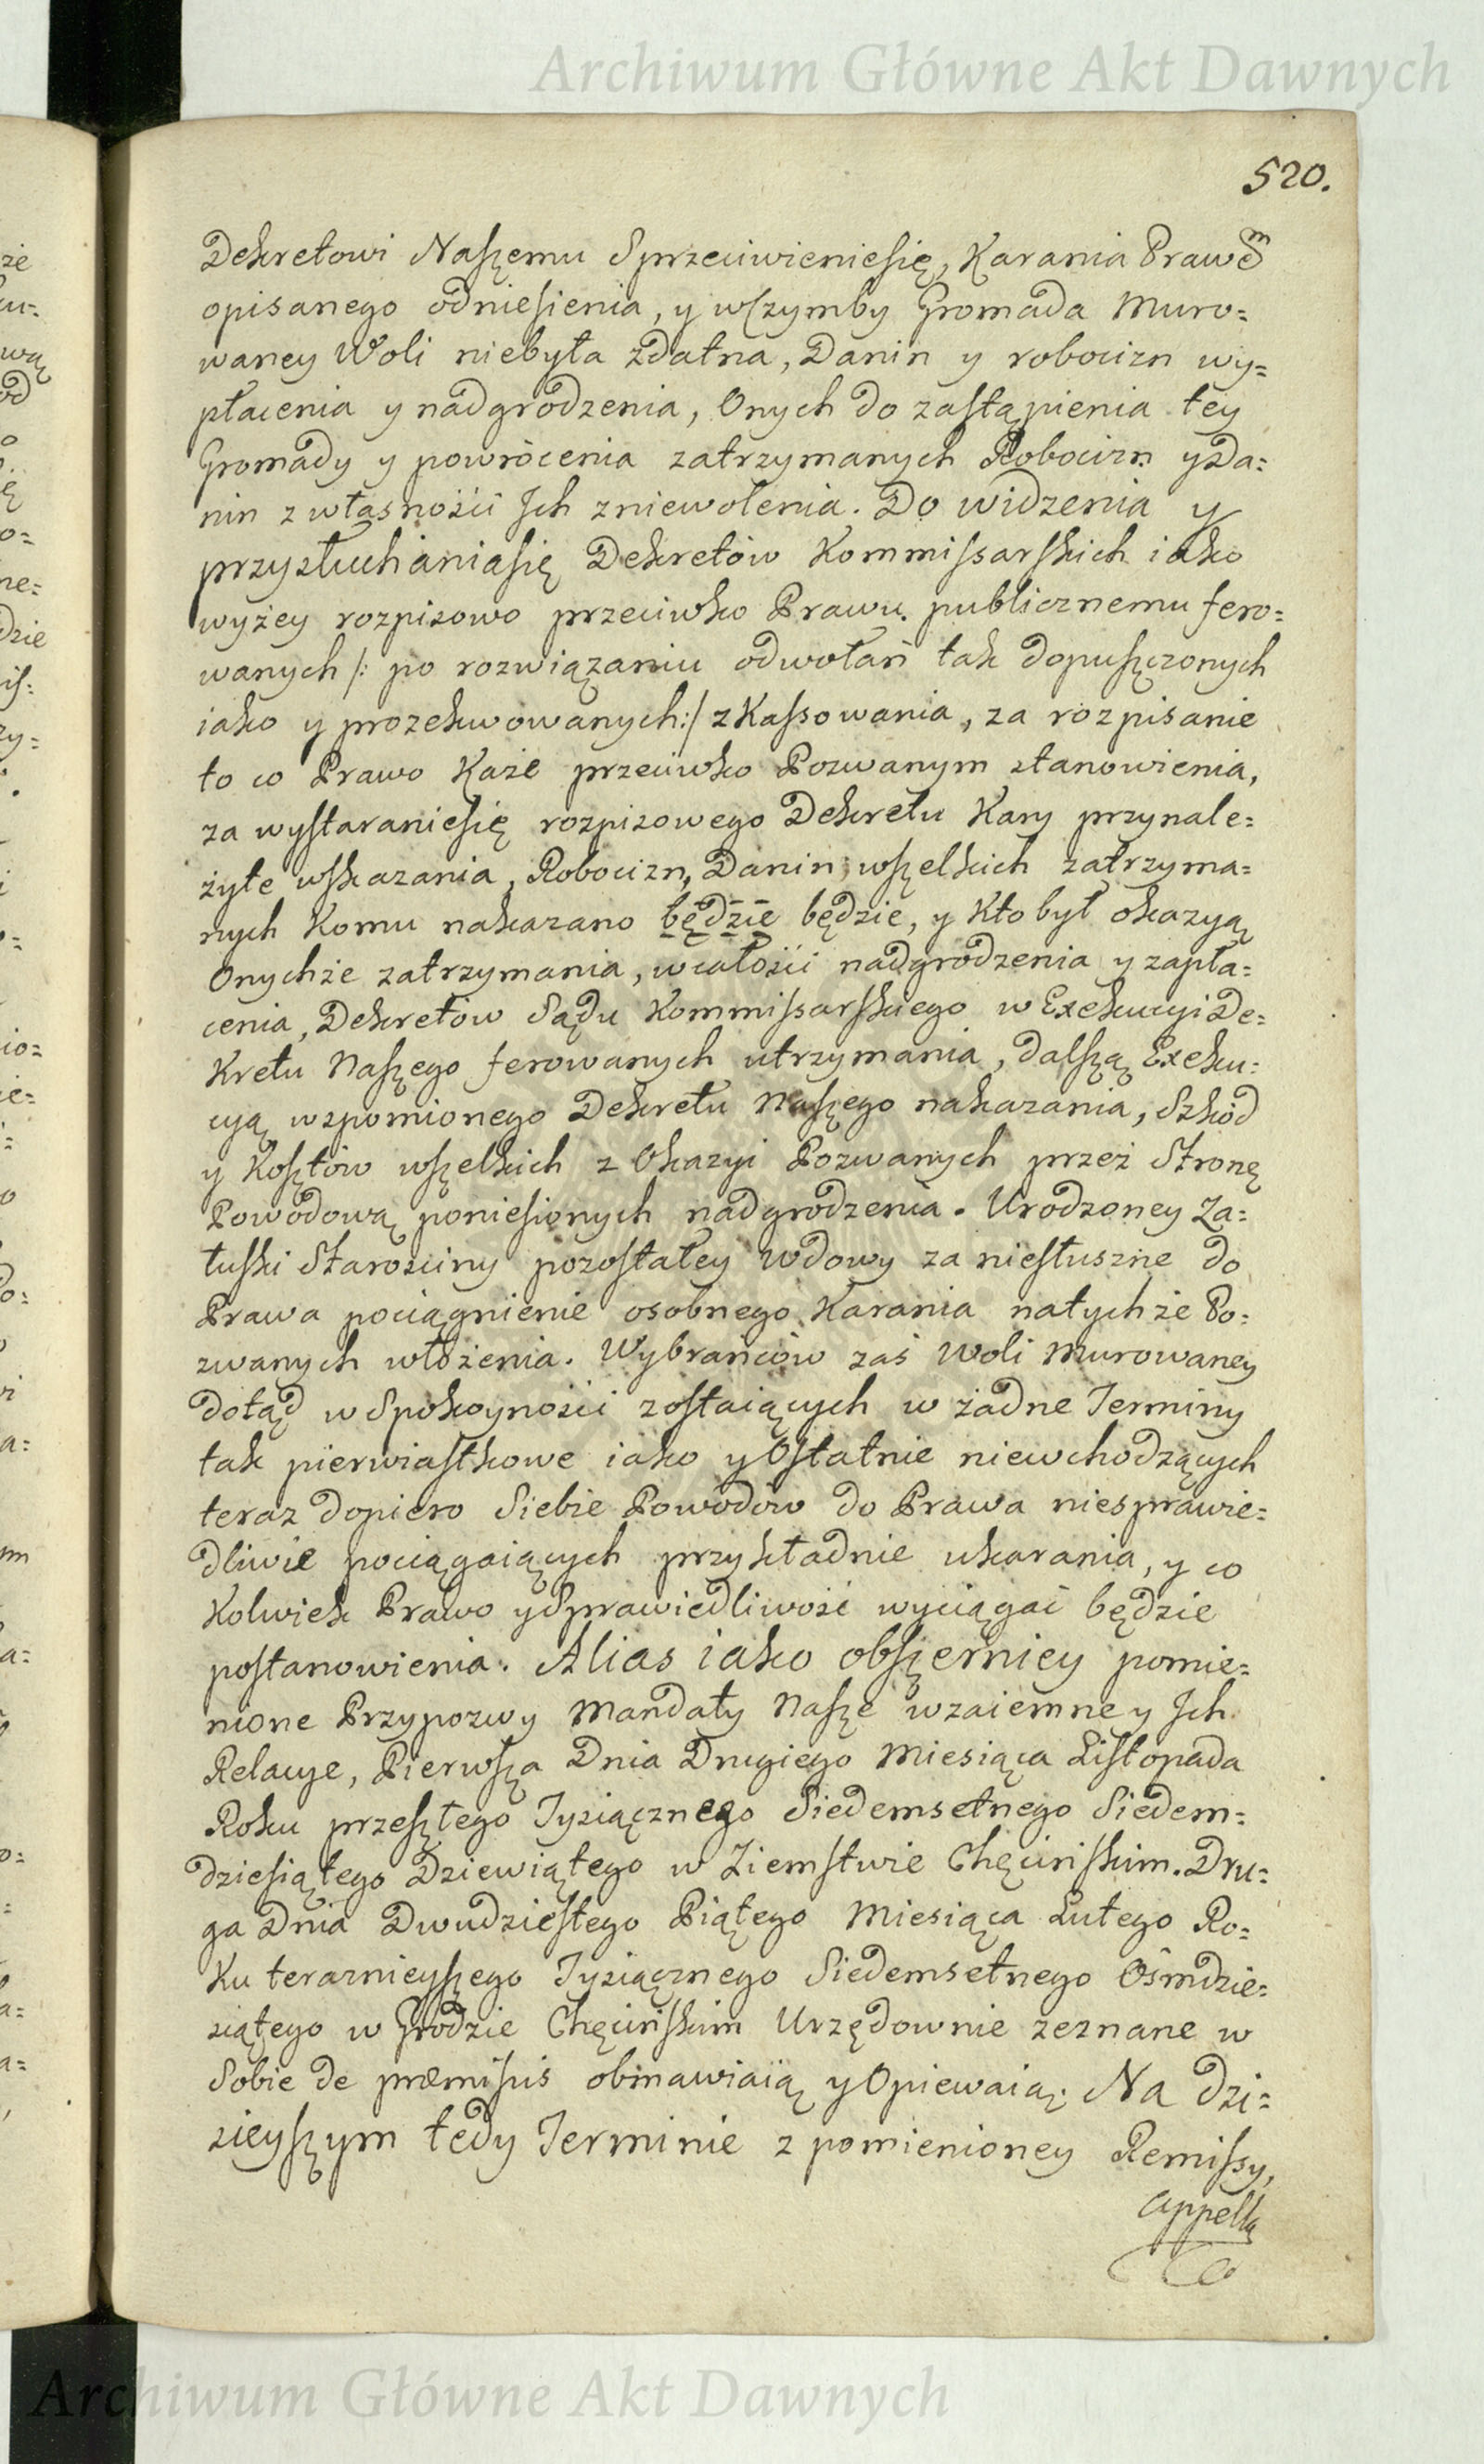 Archiwum Główne Akt Dawnych
520.
Dekretowi Naszemu Sprzeciwieniesię, Karania Prawem
opisanego odniesienia, y wczymby Gromada Muro=
waney Woli niebyła zdatna, Danin y robocizn wy=
płacenia y nadgrodzenia, Onych do zastąpienia tey
Gromady y powrócenia zatrzymanych Robocizn y Da=
nin z własności Ich zniewolenia. Do widzenia y
przysłuchaniasię Dekretów Kommissarskich iako
wyżey rozpisowo przeciwko Prawu publicznemu fero=
wanych /: po rozwiązaniu odwołań tak dopuszczonych
iako y prozekwowanych :/ zKassowania, za rozpisanie
to co Prawo Każe przeciwko Pozwanym stanowienia,
za wystaraniesię rozpisowego Dekretu Kary przynale=
żyte wskazania, Robocizn, Danin, wszelkich zatrzyma=
nych Komu nakazano będzie będzie, y Kto był okazyą
Onychże zatrzymania, wcałości nadgrodzenia y zapła=
cenia, Dekretów Sądu Kommissarskiego w Exekucyi De=
Kretu Naszego ferowanych utrzymania, dalszą Exeku=
cyą wzpomionego Dekretu Naszego nakazania, Szkód
y Kosztów wszelkich z Okazyi Pozwanych przez Stronę
Powodową poniesionych nadgrodzenia. Urodzoney Za=
łuski Starosciny pozostałey Wdowy za niesłuszne do
Prawa pociągnienie osobnego Karania natychże Po=
zwanych włożenia. Wybrańców zaś Woli Murowaney
dotąd w Spokoyności zostaiących w żadne Terminy
tak pierwiastkowe iako y Ostatnie niewchodzących
teraz dopiero Siebie Powodów do Prawa niesprawie=
dliwie pociągaiących przykładnie ukarania, y co
Kolwiek Prawo y Sprawiedliwość wyciągać będzie
postanowienia. Alias iako obszerniey pomie=
nione Przypozwy Mandaty Nasze wzaiemne y Ich
Relacye, Pierwsza Dnia Drugiego Miesiąca Listopada
Roku przeszłego Tysiącznego Siedemsetnego Siedem=
dziesiątego Dziewiątego w Ziemstwie Chęcińskim. Dru=
ga Dnia Dwudziestego Piątego Miesiąca Lutego Ro=
Ku teraznieyszego Tysiącznego Siedemsetnego Ośmdzie=
siątego w Grodzie Chęcińskim Urzędownie zeznane w
Sobie de præmissis obmawiaią y Opiewaią. Na dzi=
sieyszym tedy Terminie z pomienioney Remissy,
Appella
Archiwum Główne Akt Dawnych